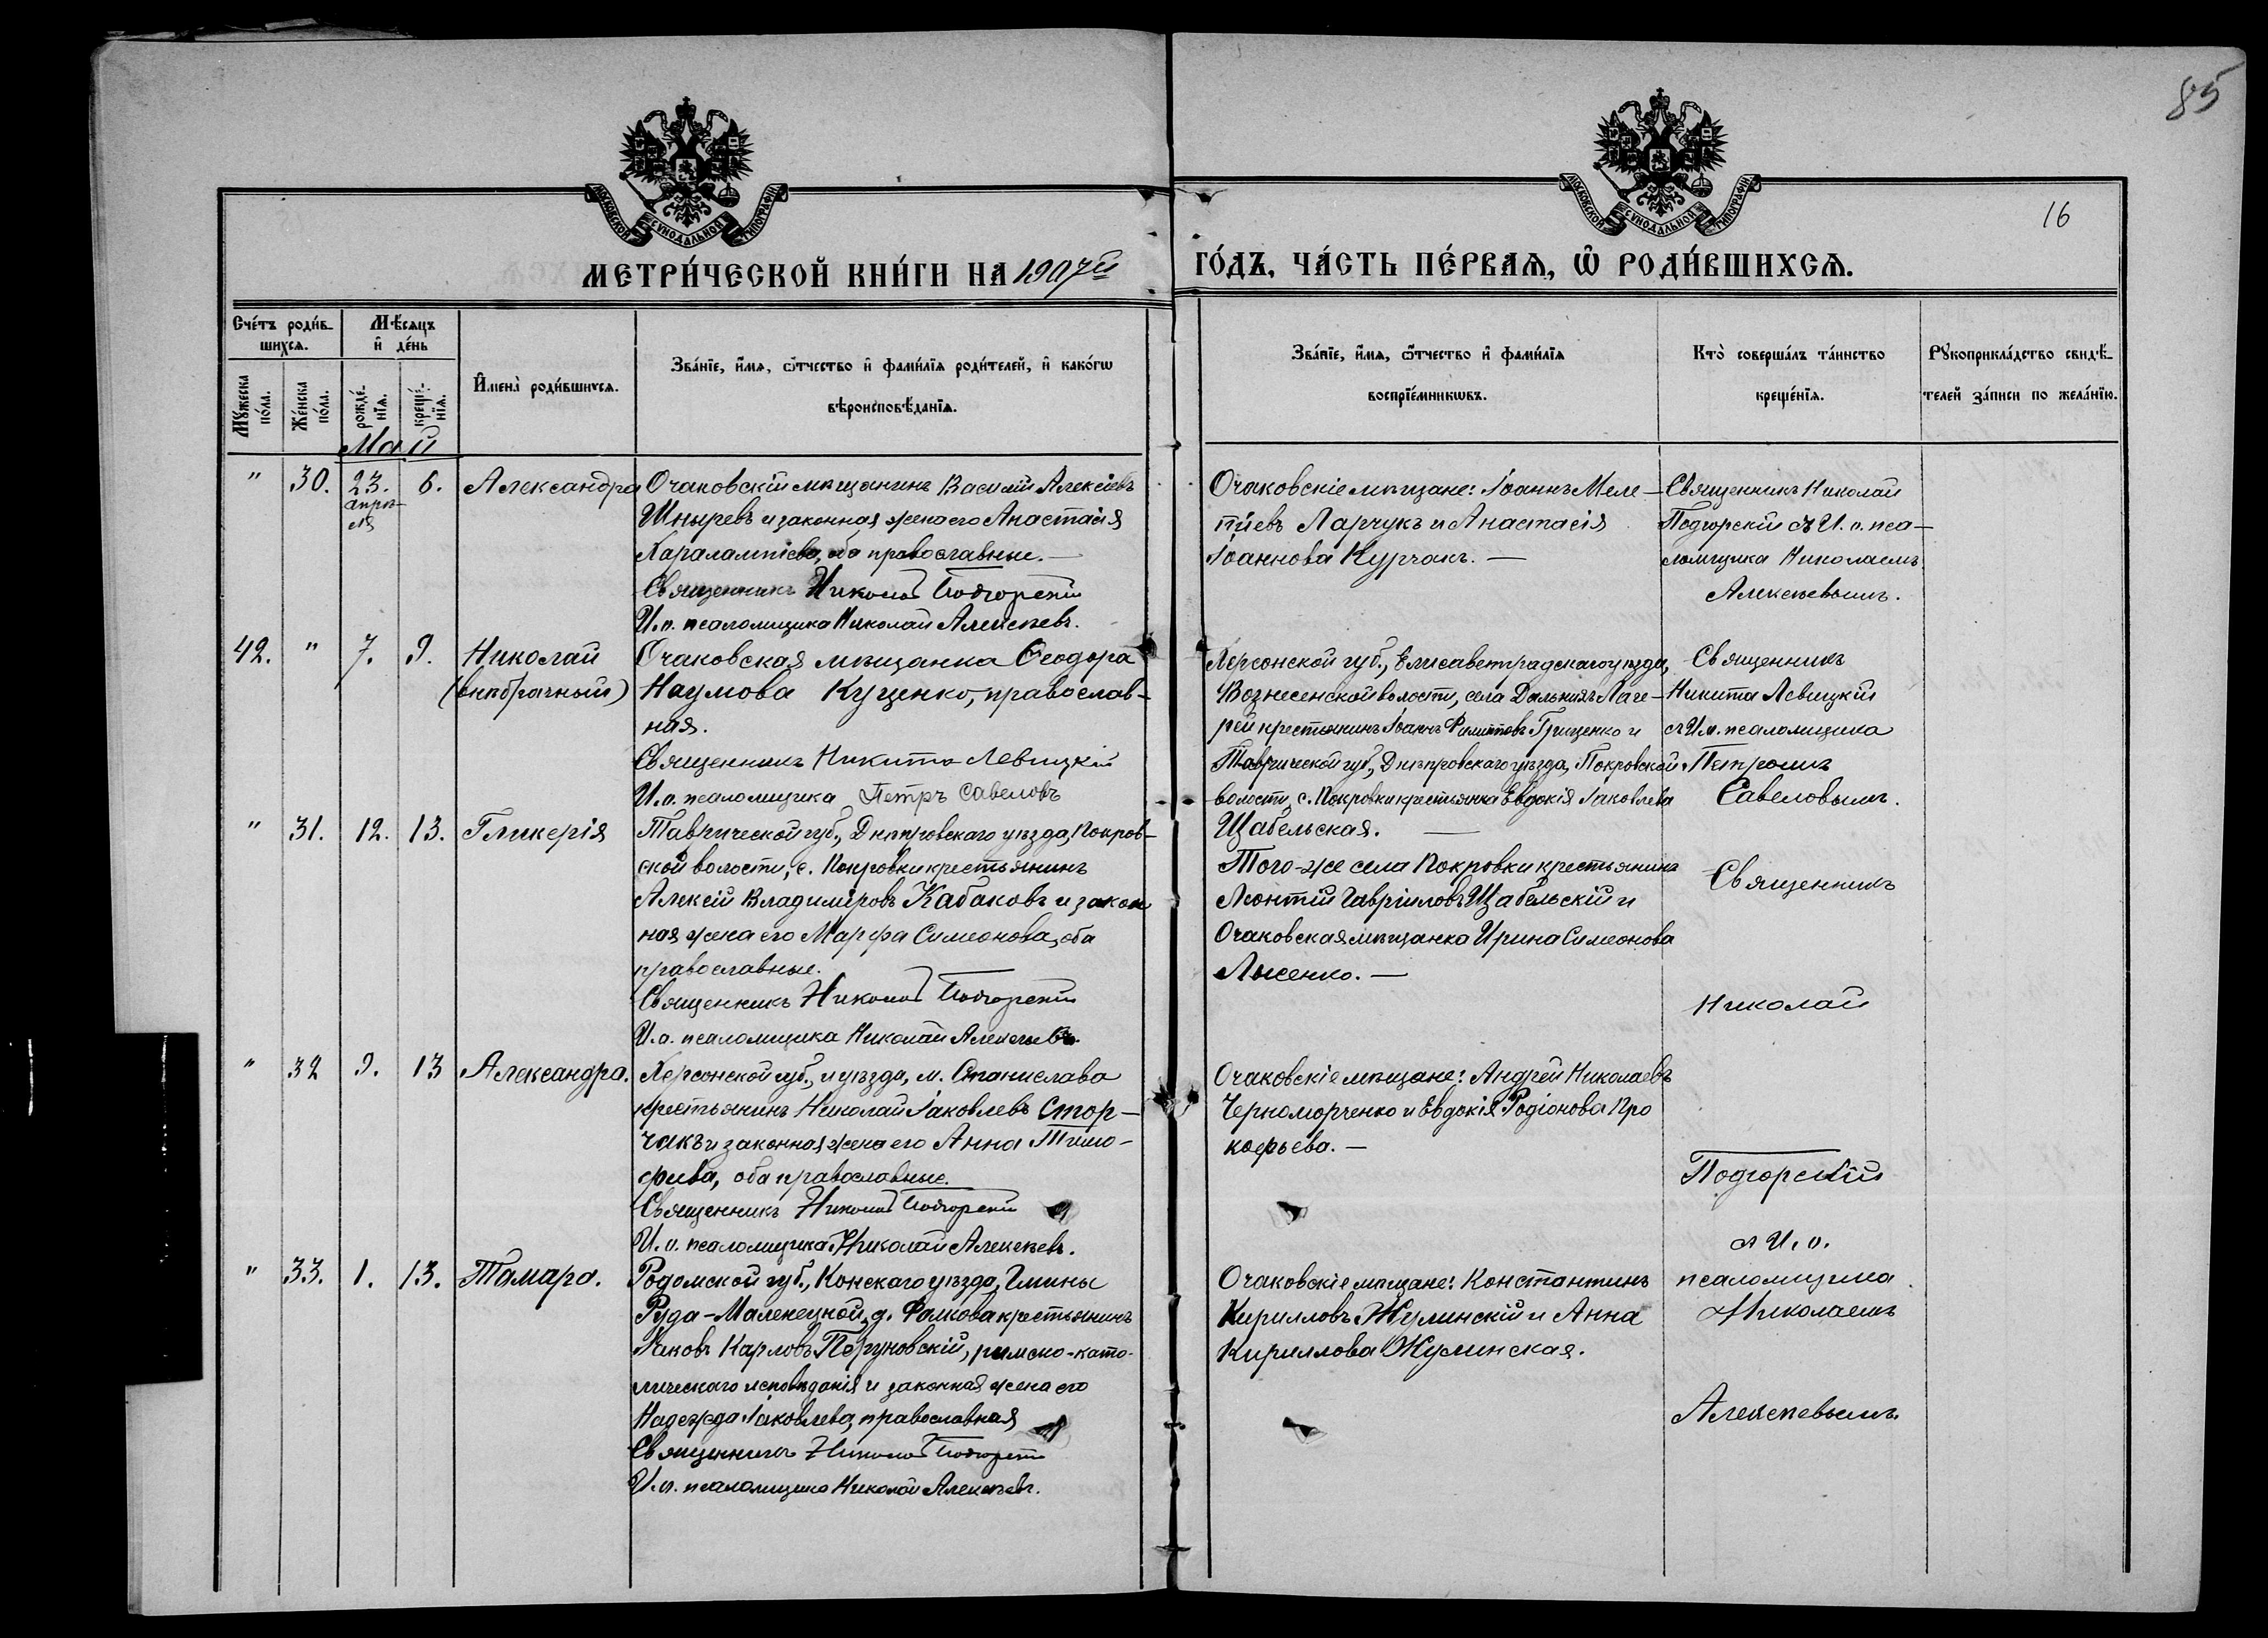 85
16
МОСКОВСКОЙ СѴНОДАЛЬНОЙ ТИПОГРАФІИ
МОСКОВСКОЙ СѴНОДАЛЬНОЙ ТИПОГРАФІИ
МЕТРИ́ЧЕСКОЙ КНИ́ГИ НА 1907й
ГО́ДЪ, ЧА́СТЬ ПЕ́РВАѦ, Ѽ РОДИ́ВШИХСѦ.
Сче́тъ роди́в-
шихсѧ.
Мѣ́сяцъ
и҆ де́нь
Мꙋ́жеска
по́ла.
Же́нска
по́ла.
рожде́-
нїѧ.
креще́-
нїѧ.
И҆мена̀ роди́вшихсѧ.
Зва́нїе, и҆́мѧ, ѻ҆́тчество и҆ фами́лїѧ роди́телей, и҆ како́гѡ
вѣроисповѣ́данїѧ.
Зва́нїе, и҆́мѧ, ѻ҆́тчество и҆ фами́лїѧ
воспрїе́мникѡвъ.
Кто̀ соверша́лъ та́инство
креще́нїѧ.
Рꙋкоприкла́дство свидѣ́-
телей за́писи по жела́нїю.
Май
" 30. 23. 6. Александра
апрѣ-
ля
Очаковскій мѣщанинъ Василій Алексіевъ
Шныревъ и законная жена его Анастасія
Харалампіева, оба православные. —
Священникъ Николай Подгорскій
И. о. псаломщика Николай Алексѣевъ.
Очаковскіе мѣщане: Іоаннъ Меле-
тіевъ Ларчукъ и Анастасія
Іоаннова Курчакъ. —
Священникъ Николай
Подгорскій съ И. о. пса-
ломщика Николаемъ
Алексѣевымъ.
42. " 7. 9. Николай
(внѣбрачный)
Очаковская мѣщанка Ѳеодора
Наумова Куценко, православ-
ная.
Священникъ Никита Левицкій
И. о. псаломщика Петръ Савеловъ
Херсонской губ., Елисаветградскаго уѣзда,
Вознесенской волости, села Дальнихъ Лаге-
рей крестьянинъ Іоаннъ Филипповъ Грищенко и
Таврической губ., Днѣпровскаго уѣзда, Покровской
волости, с. Покровки крестьянка Евдокія Іаковлева
Щабельская. —
Священникъ
Никита Левицкій
съ И. о. псаломщика
Петромъ
Савеловымъ.
" 31. 12. 13. Гликерія
Таврической губ., Днѣпровскаго уѣзда, Покров-
ской волости, с. Покровки крестьянинъ
Алексій Владиміровъ Кабаковъ и закон
ная жена его Марфа Симеонова, оба
православные.
Священникъ Николай Подгорскій
И. о. псаломщика Николай Алексѣевъ.
Того-же села Покровки крестьянинъ
Леонтій Гавріиловъ Щабельскій и
Очаковская мѣщанка Ирина Симеонова
Лысенко. —
Священникъ
Николай
" 32 9. 13 Александра.
Херсонской губ., и уѣзда, м. Станислава
крестьянинъ Николай Іаковлевъ Стор-
чакъ и законная жена его Анна Тимо-
фѣева, оба православные.
Священникъ Николай Подгорскій
И. о. псаломщика Николай Алексѣевъ.
Очаковскіе мѣщане: Андрей Николаевъ
Черноморченко и Евдокія Родіонова Про
кофьева. —
Подгорскій
съ И. о.
" 33. 1. 13. Тамара.
Родомской губ., Конскаго уѣзда, Гмины
Руда-Маленецкой, д. Фалкова крестьянинъ
Іаковъ Карловъ Пергуновскій, римско-като-
лическаго исповѣданія и законная жена его
Надежда Іаковлева, православная
Священникъ Николай Подгорскій
И. о. псаломщика Николай Алексѣевъ.
Очаковскіе мѣщане: Константинъ
Кирилловъ Жулинскій и Анна
Кириллова Жулинская.
псаломщика
Николаемъ
Алексѣевымъ.